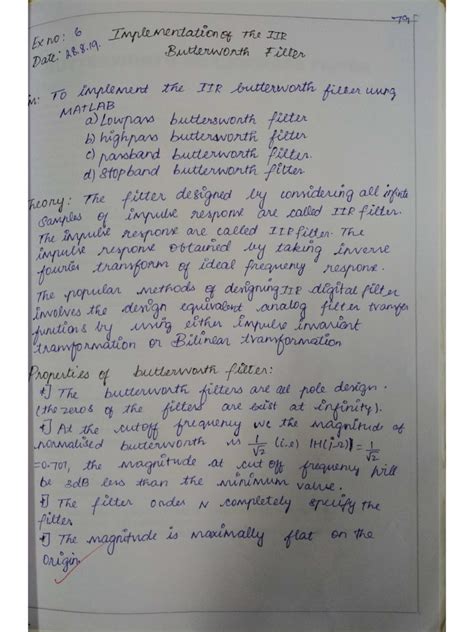 79
Ex no: 6 Implementation of The IIR
Date: 28.8.19. Butterworth Filter
m: To implement the IIR butterworth filter using
MATLAB
a) Lowpass buttersworth filter
b) highpass buttersworth filter
c) passband butterworth filter.
d) Stopband butterworth filter
heory: The filter designed by considering all infinite
samples of impulse response are called IIR filter.
The impulse response are called IIR filter. The
impulse response obtained by taking inverse
fourier transform of ideal frequency response.
The popular methods of designing IIR digital filter
involves the design equivalent analog filter transfer
functions by using either impulse invariant
transformation or Bilinear transformation
Properties of butterworth filter:
The butterworth filters are all pole design.
(the zeros of the filters are exist at infinity).
At the cutoff frequency ωc the magnitude of
normalised butterworth is 1/√2 (i.e) |H(j-Ω)| = 1/√2
=0.707, the magnitude at cut off frequency will
be 3dB less than the minimum value.
The filter order N completely specify the
filter
The magnitude is maximally flat on the
origin.